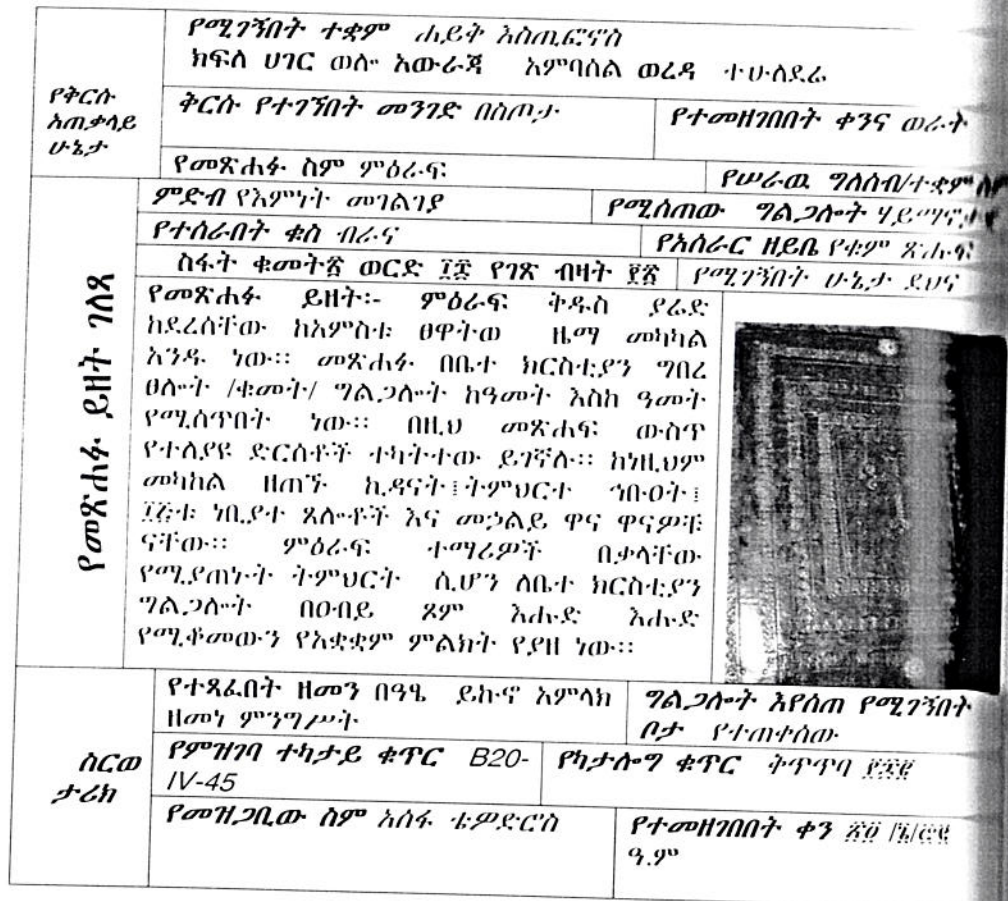 የሚገኝበት ተቋም ሐይቅ እስጢፎኖስ
ክፍለ ሀገር ወሎ አውራጃ አምባሰል ወረዳ ተሁለደሬ
የቅርሱ
አጠቃላይ
ሁኔታ
ቅርሱ የተገኘበት መንገድ በስጦታ
የተመዘገበበት ቀንና ወራት
የመጽሐፉ ስም ምዕራፍ
የሠራዉ ግለሰብ/ተቋም
የመጽሐፉ ይዘት ገለጻ
ምድብ የእምነት መገልገያ
የሚሰጠው ግልጋሎት
የተሰራበት ቁስ ብራና
የአሰራር ዘይቤ የቁም ጽሑፍ
ስፋት ቁመት ወርድ የገጽ ብዛት
የሚገኝበት ሁኔታ ደህና
የመጽሐፉ ይዘት፡- ምዕራፍ ቅዱስ ያሬድ
ከደረሰቸው ከአምስቱ ፀዋትወ ዜማ መካከል
አንዱ ነው፡፡ መጽሐፉ በቤተ ክርስቲያን ግበረ
ፀሎት /ቁመት/ ግልጋሎት ከዓመት እስከ ዓመት
የሚሰጥበት ነው፡፡ በዚህ መጽሐፍ ውስጥ
የተለያዩ ድርሰቶች ተካትተው ይገኛሉ፡፡ ከነዚህም
መካከል ዘጠኙ ኪዳናት፤ትምህርተ ኅቡዐት፤
ነቢያተ ጸሎቶች እና መኃልይ ዋና ዋናዎቹ
ናቸው፡፡ ምዕራፍ ተማሪዎች በቃላቸው
የሚያጠኑት ትምህርት ሲሆን ለቤተ ክርስቲያን
ግልጋሎት በዐብይ ጾም እሑድ እሑድ
የሚቆመውን የአቋቋም ምልክት የያዘ ነው፡፡
ስርወ
ታሪክ
የተጻፈበት ዘመን በዓፄ ይኩኖ አምላክ
ዘመነ ምንግሥት
ግልጋሎት እየሰጠ የሚገኝበት
ቦታ የተጠቀሰው
የምዝገባ ተካታይ ቁጥር B20-
IV-45
የካታሎግ ቁጥር ቅጥጥባ
የመዝጋቢው ስም አሰፋ ቴዎድሮስ
የተመዘገበበት ቀን
ዓ.ም